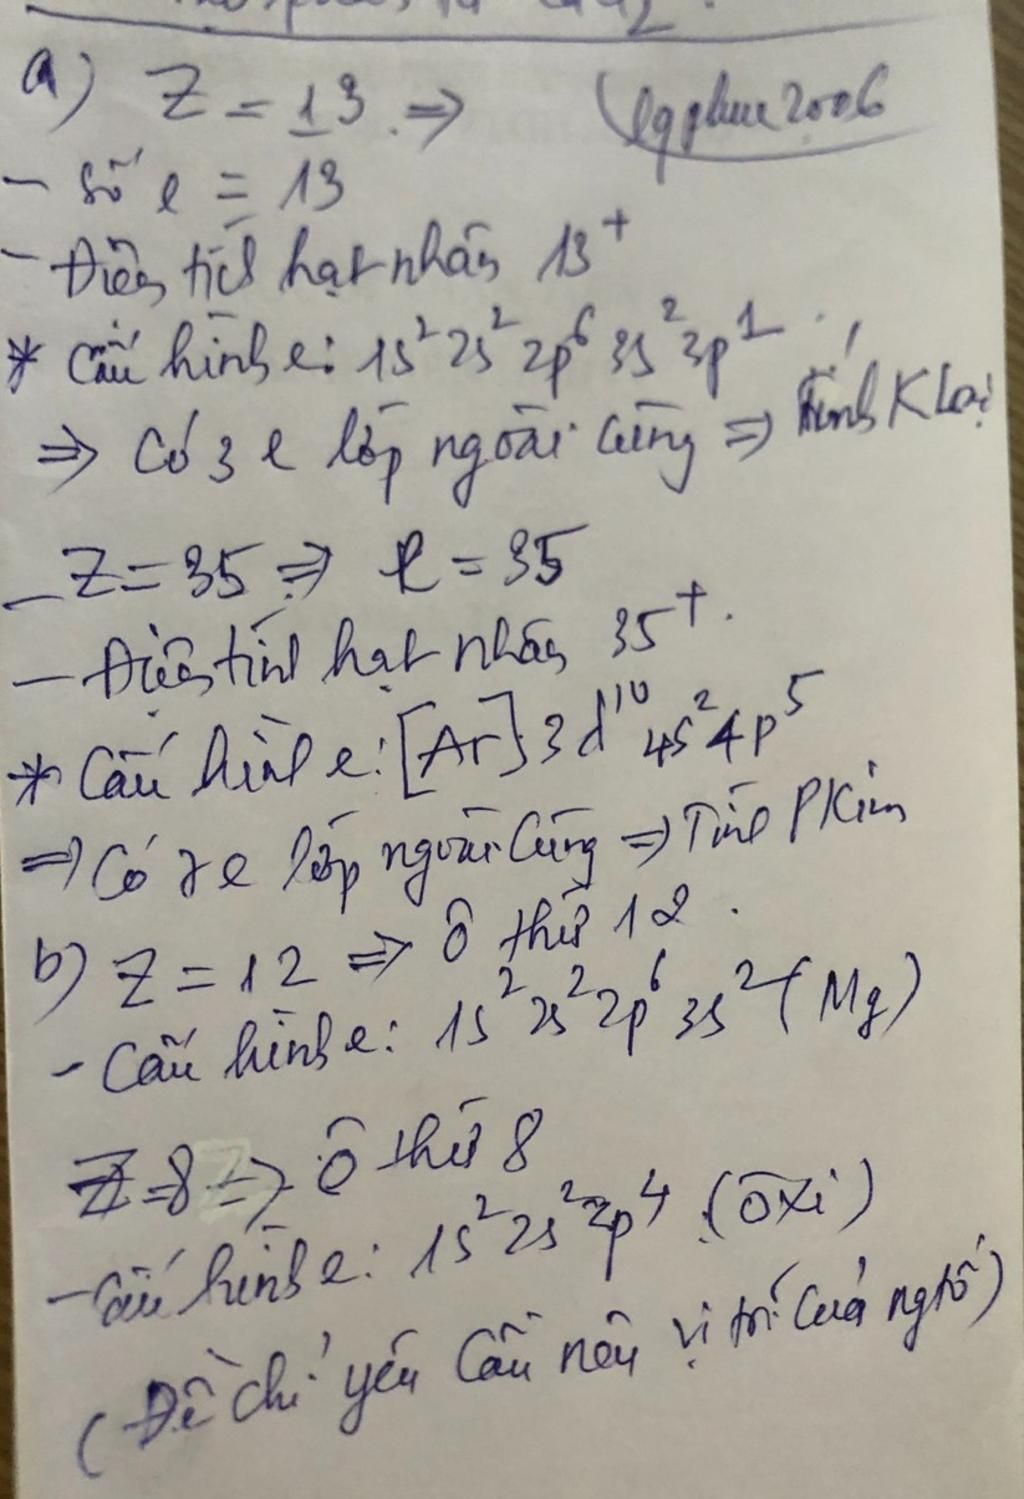 a) Z = 13 ⇒ (lgphuc2006
- Số e = 13
- Điện tích hạt nhân 13+
* Cấu hình e: 1s² 2s² 2p⁶ 3s² 3p¹
⇒ Có 3 e lớp ngoài cùng ⇒ tính K Loại
- Z = 35 ⇒ e = 35
- Điện tính hạt nhân 35+.
* Cấu hình e: [Ar] 3d¹⁰ 4s² 4p⁵
⇒ Có 7 e lớp ngoài cùng ⇒ Tính P Kim
b) Z = 12 ⇒ Ô thứ 12.
- Cấu hình e: 1s² 2s² 2p⁶ 3s² (Mg)
Z = 8 ⇒ Ô thứ 8
- Cấu hình e: 1s² 2s² 2p⁴ (Oxi)
(Đề chỉ yêu cầu nêu vị trí của ngtố)